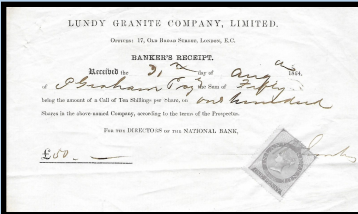 LUNDY GRANITE COMPANY, LIMITED.
OFFICES: 17, OLD BROAD STREET, LONDON, E.C.
BANKER'S RECEIPT.
Received the 31st day of Aug 1864,
of J Graham Esq the Sum of Fifty
being the amount of a Call of Ten Shillings per Share, on one hundred
Shares in the above-named Company, according to the terms of the Prospectus.
FOR THE DIRECTORS OF THE NATIONAL BANK,
£50